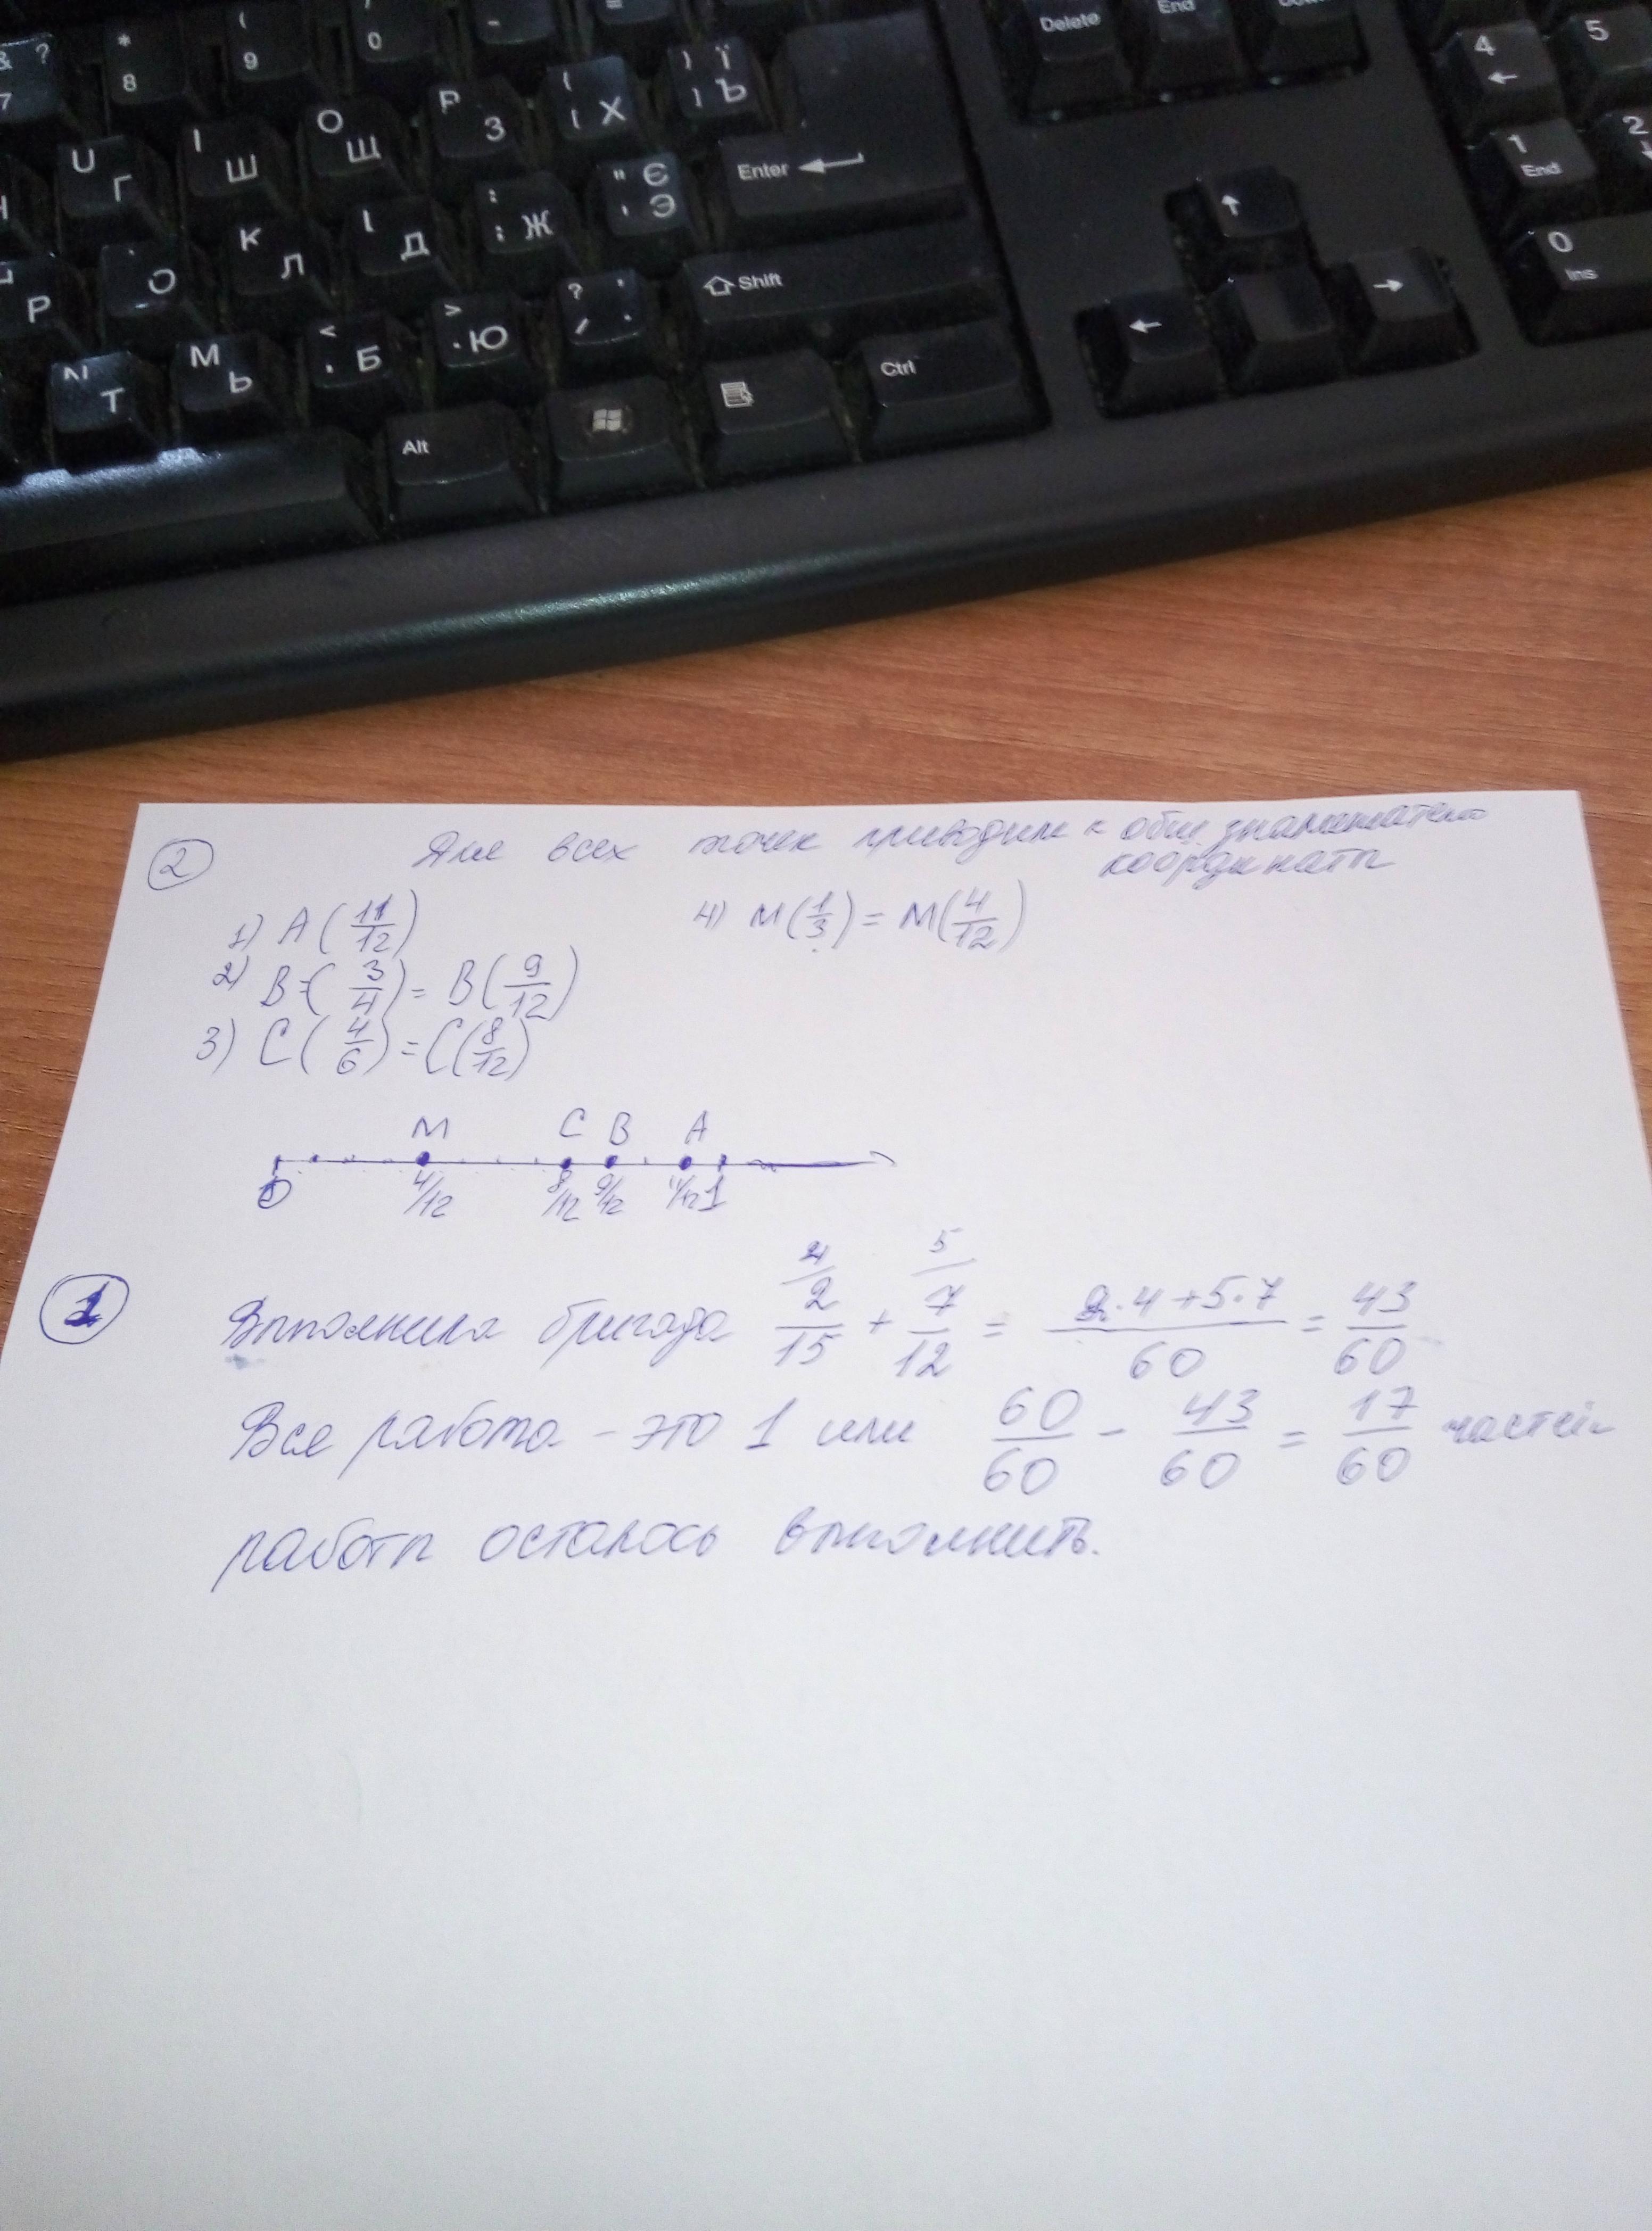 & ? 7
* 8
( 9
) 0
-
=
Delete
End
4 ←
5
U Г
І Ш
O Щ
P З
{ [ Х
} ] Ї Ъ
Enter
1 End
2
Р
О
K Л
L Д
: ; Ж
" ' Є Э
Shift
0 Ins
N Т
M Ь
< , Б
> . Ю
? / , .
Alt
Ctrl
2 Для всех точек приводим к общ. знаменателю
координаты
1) A (11/12) 4) M(1/3) = M(4/12)
2) B=(3/4) = B(9/12)
3) C(4/6) = C(8/12)
M C B A
0 4/12 8/12 9/12 11/12 1
4 5
1 Выполнила бригада 2/15 + 7/12 = 2·4+5·7/60 = 43/60
Вся работа - это 1 или 60/60 - 43/60 = 17/60 частей
работы осталось выполнить.